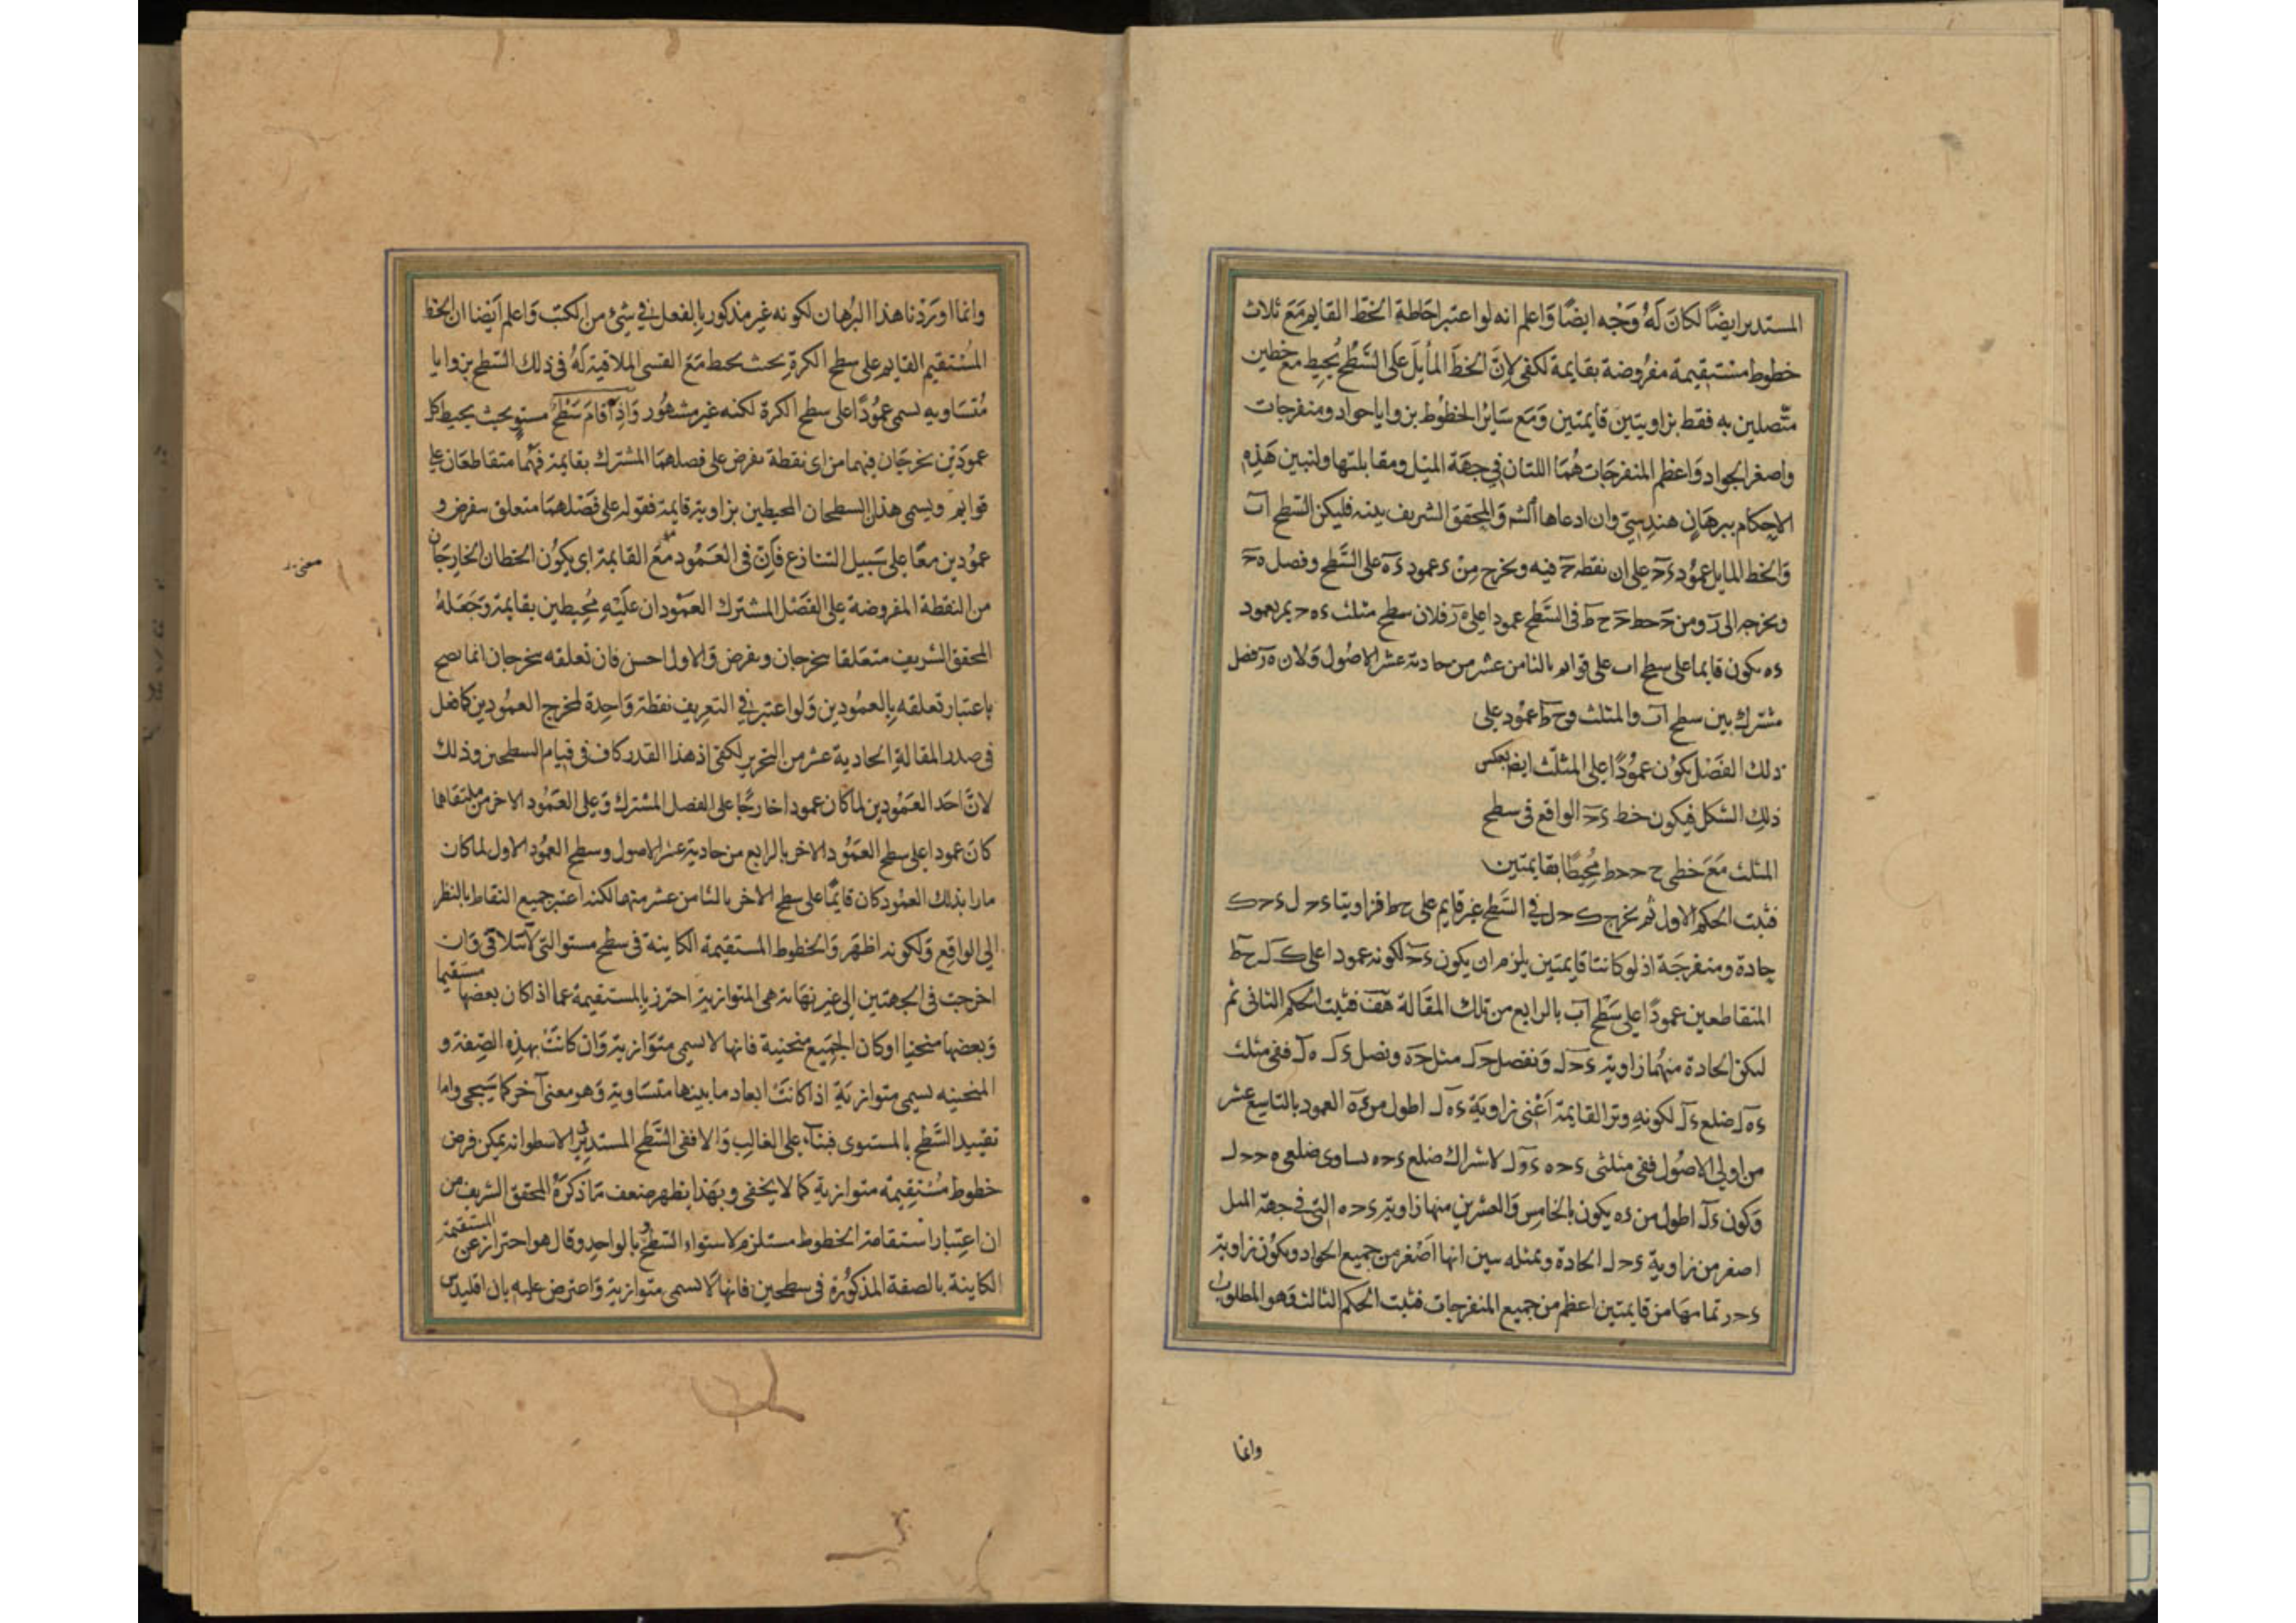 المستدير ايضًا لكان لَهُ وَجْه ايضًا وَاعلم انه لو اعتبر احَاطةِ الخَطّ القايم مَعَ ثلاث
خطوط مستقيمة مفرُوضة بقايمة لكفى لاِنَّ الخطَ المأيلَ عَلى السَّطْح يُحيِط مع خطين
متّصلين به فقط بزاويتين قايمتين وَمَع سَايرْ الخطوُط بزوايا حواد ومنفرجات
واصغر الحواد وَاعظم المنفرجَات هُمَا اللتان في جهَة الميْل ومقابلتها ولنبين هَذِهِ
الاحكام ببرهَانٍ هندسيّ وان ادعاها الشم وَالمحقق الشريف بينه فليكن السّطح اب
وَالخط المايل عموُد ءح على ان نقطة ح فيه ونخرج مِنْ ء عمود ءه على السَّطح ونصل هح
ونخرجه الى ر ومن ح خط ح ط في السَّطح عمودا على ه ر فلان سطح مثلث ء ه ح يمر بعمود
ءه يكون قايما على سطح اب على قوايم بالثامن عشر من حادية عشر الاصُول وَلان ه ر فصل
مشترك بين سطح اب والمثلث وح ط عمُود على
ذلك الفَصْل يكوُن عموُدًا على المثلّث ايضا بعكس
ذلِك الشكل فيكون خط ءح الواقع في سطح
المثلث مَعَ خطى ح ه ح ط مُحِيطًا بقايمتين
فثبت الحكم الاول ثم نخرج ك ح ل في السَّطح غير قايم على ح ط فزاويتا ء ح ل ء ح ك
حادة ومنفرجَة اذ لو كانتا قايمتين يلزم ان يكون ءح لكونه عمودا على ك ل ح ط
المتقاطعين عمودًا على سَطْح اب بالرابع من تلك المقَالة هَف فثبت الحكم الثاني ثم
ليكن الحادة منهُما زاوية ء ح ل وَنفصل ح ل مثل ح ه ونصل ء ل ه ل ففي مثلث
ء ه ل ضلع ء ل لكونهِ وتر القايمة اَعْني زاويَة ء ه ل اطول من ء ه العمود بالتاسع عشر
من اولى الاصُول ففي مثلثي ء ح ه ء ح ل لاشراك ضلع ء ح وتساوى ضلعي ه ح ح ل
وَكون ء ل اطول من ء ه يكون بالخامِس وَالعشرين منها زاوية ء ح ه التي في جهة الميل
اصغر من زاويةِ ء ح ل الحادة وبمثله نبين انها اصْغر من جميع الحواد ويكوُن زاوية
ء ح ر تمامهَا من قايمتين اعظم من جميع المنفرجات فثبت الحكم الثالث وَهو المطلوب
وانما
وانما اورَدْنا هذا البرُهان لكونه غير مذكور باِلفعل في شئ من الكتب وَاعلم اَيْضا ان الخط
المُسْتقيم القايم على سطح الكرة بحيث يحيط مَعَ القسى الملاقية لَهُ في ذلك السّطح بزوايا
مُتسَاويه يسمى عموُدًا على سطح الكرة لكنه غير مشهُور وَاِذا قامَ سَطْح مستوٍ بحيث يحيط كل
عموديَن يخرجَان فيهما من اى نقطة تفرض على فصلهمَا المشترك بقايمة فهُما متقاطعَان على
قوايم ويسمى هذان السطحان المحيطين بزاوية قايمة فقوله على فَصْلهمَا متعلق بتفرض و
عموُدين معًا على سَبيل التنازع فاِنّ في العَمُود مَعَ القايمة اى يكوُن الخطان الخارِجَان
معنى
من النقطة المفروضة على الفصَْل المشترك العَمُودان علَيْهِ محُيطين بقايمة وَجَعَلهُ
المحقق الشريف متعَلقا بيخرجان وبفرض وَالاول احسن فان تعلقه بيخرجان انما يصح
باعتبار تعلقه بِالعمُودين وَلو اعتبر في التعريف نقطة وَاحِدة لمخرج العموُدين كما فعل
في صدر المقالةِ الحادية عشر من التحرير لكفى اذ هذا القدر كاف في قيام السطحين وذلك
لانّ احَد العَمُودين لما كان عمودا خارجًا على الفصل المشترك وَعلى العَمُود الاخر من ملتقاها
كانَ عمودا على سطح العموُد الاخر بالرابع من حادية عشر الاصول وسطح العموُد الاول لما كان
مارا بذلك العمُود كان قايمًا على سطح الاخر بالثامن عشر منها لكنه اعتبر جميع النقاط بالنظر
الى الواقِع وَلكونه اظهَر وَالخطوط المستقيمة الكاينة في سطح مستو التي لا تتلاقى وَان
اخرجت في الجهتين الى غير نهَاية هى المتوازية احترز باِلمستقيمة عما اذا كان بعضها مستقيما
وَبعضهَا منحنيا او كان الجميع منحنية فانها لا تسمى متوَازية وَان كانَتْ بهذه الصِفة و
المنحنيه تسمى متوازيَةِ اذا كانتَْ ابعاد ما بينها متسَاوية وَهو معنى آخر كما سَيجى واما
تقييد السَّطح بالمستوى فبنآء على الغالِب وَالا ففي السَّطح المستدير الاسطوانه يمكن فرض
خطوط مسُتقيِمة متوازيةِ كما لا يخفى وبهَذا يظهر ضعف مَا ذكرهُ المحقق الشريف من
ان اعتِبار استقامة الخطوط مستلزم لاستواء السّطح بالواحِد وقال هو احتراز عن المستقيمة
الكاينة بالصفة المذكوُرة في سطحين فانها لا تسمى متوازية وَاعترض عليهِ بان اقليدس